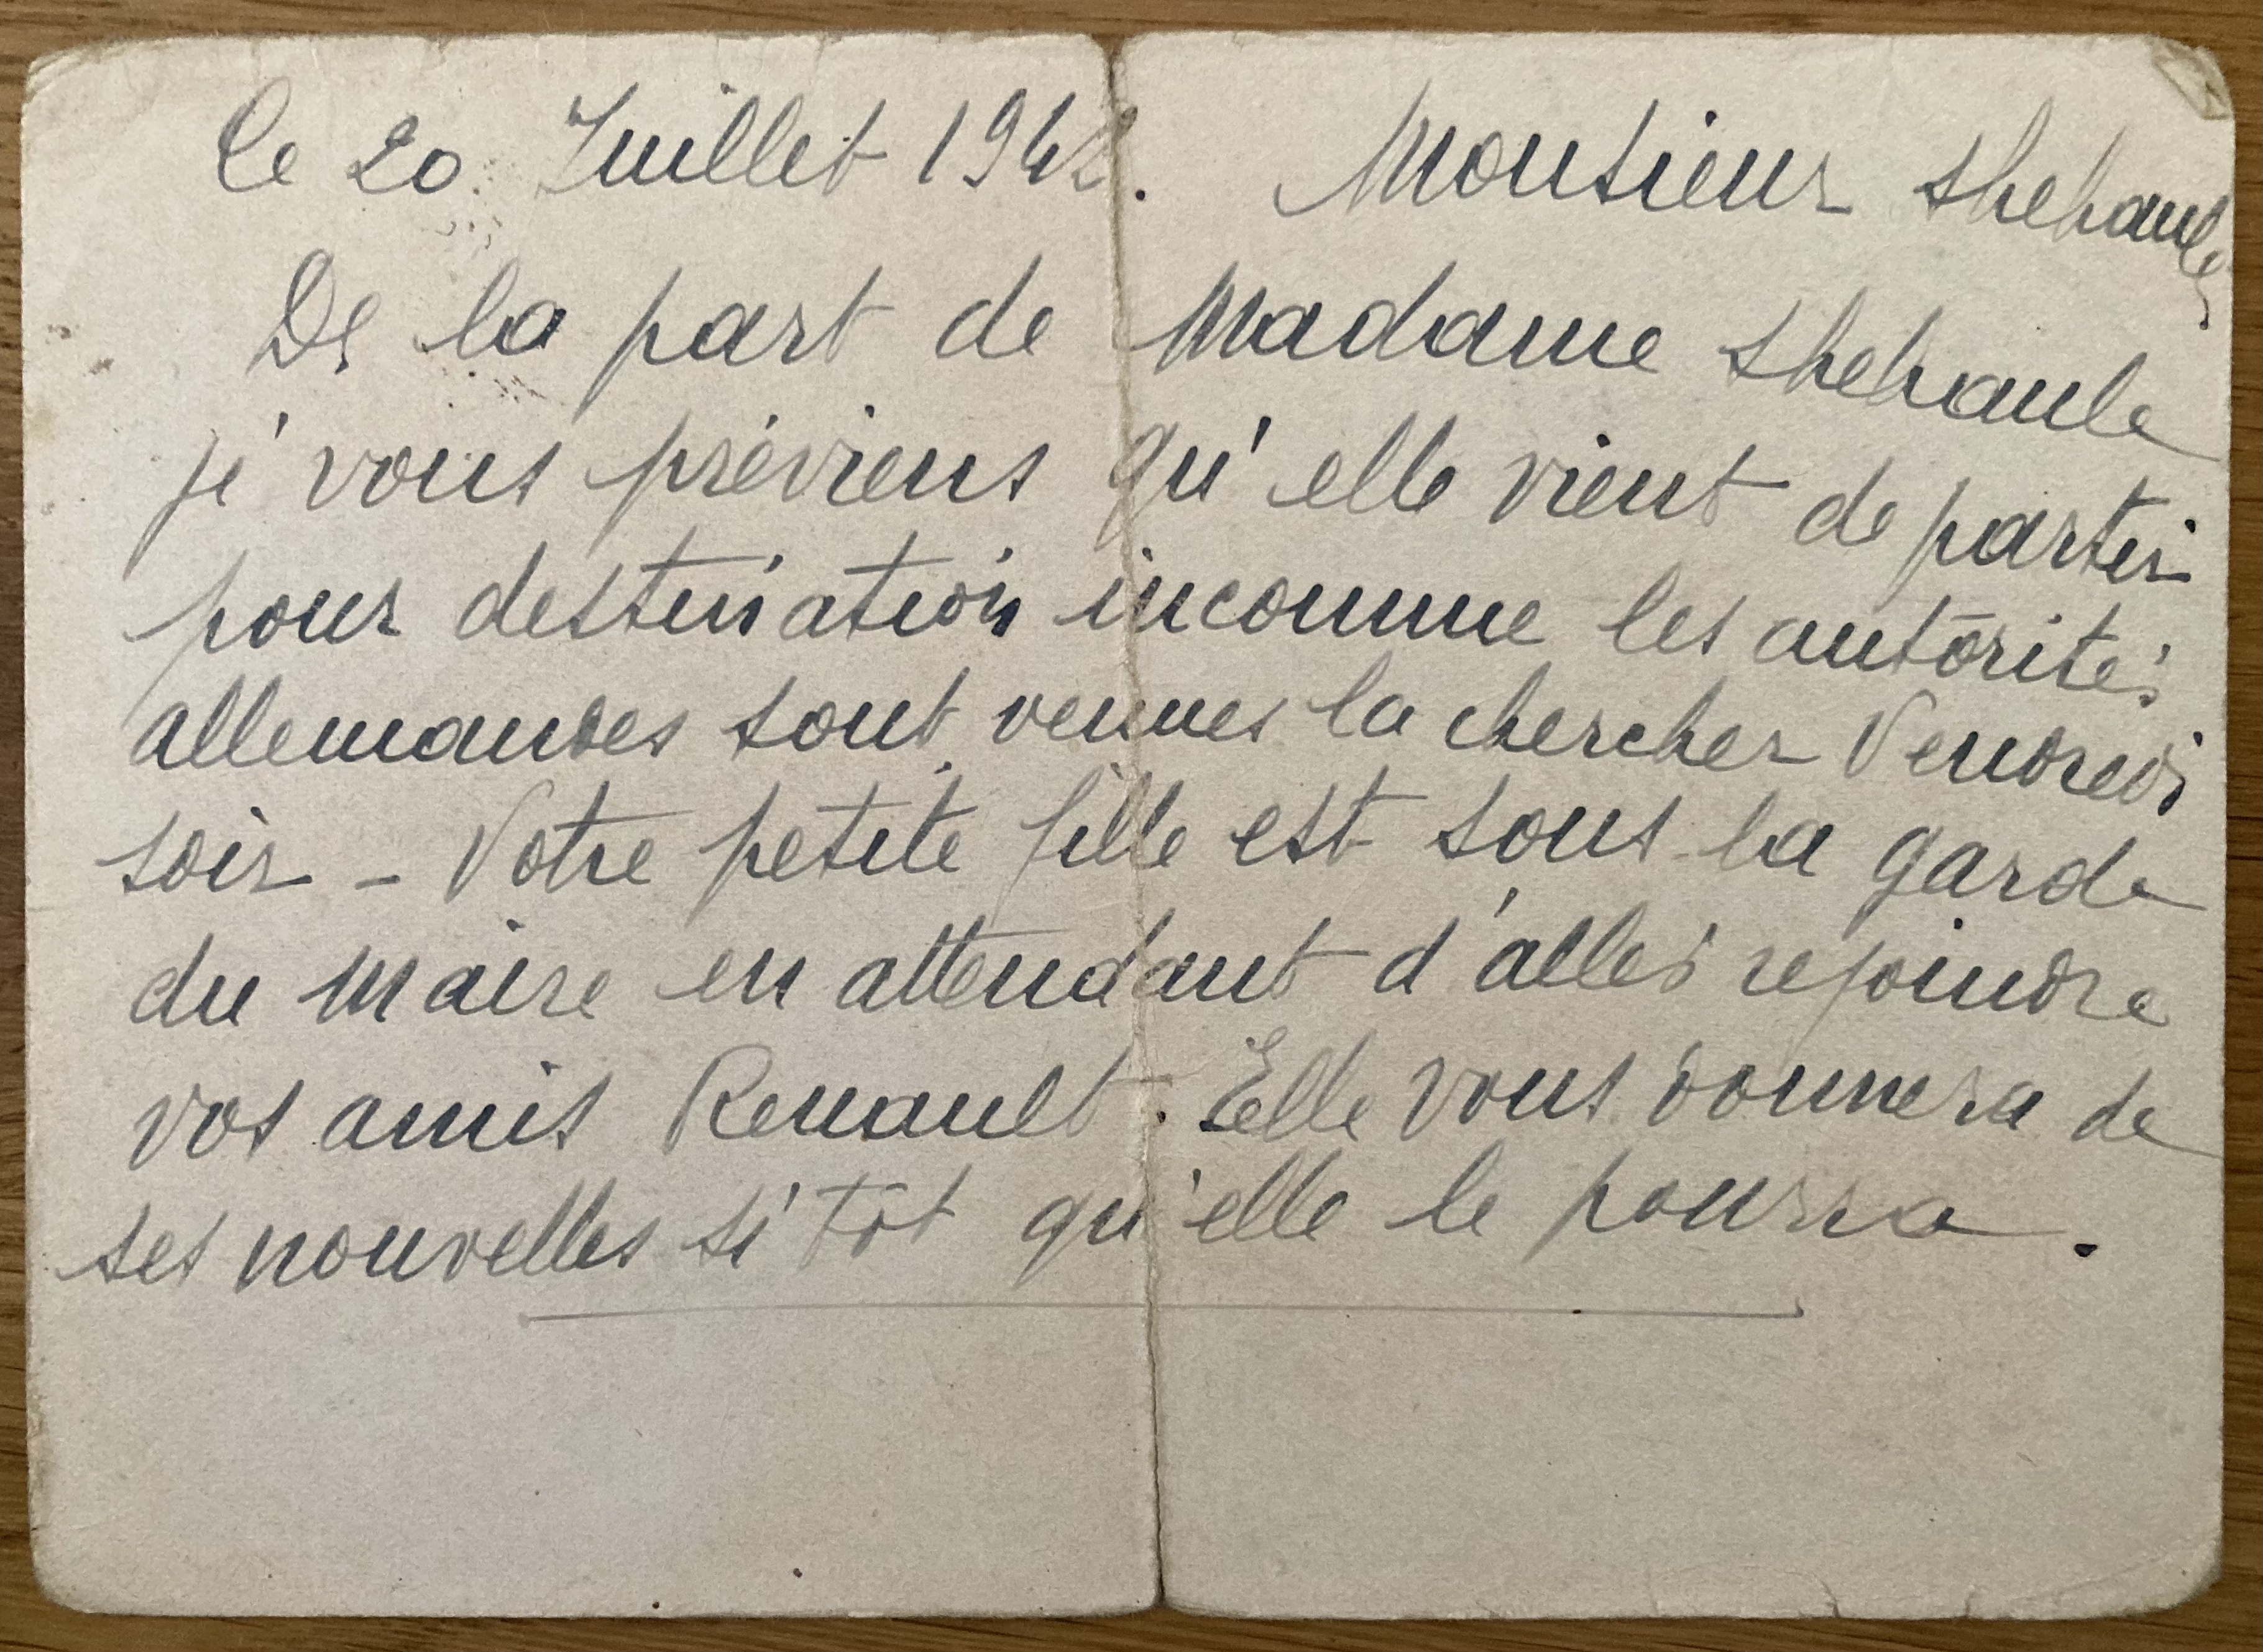 Le 20 Juillet 1942. Monsieur
De la part de Madame
je vous préviens qu'elle vient de partir
pour destination inconnue les autorités
allemandes sont venues la chercher Vendredi
soir - Votre petite fille est sous la garde
du Maire en attendant d'aller rejoindre
vos amis Renault. Elle vous donnera de
ses nouvelles si tôt qu'elle le pourra.